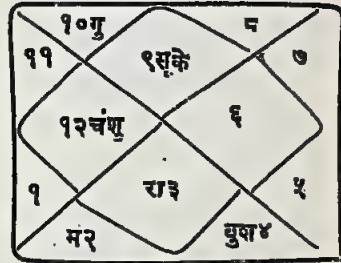 १०गु ८
११ ९सूके ७
१२चंशु ६
१ रा३ ५
मं२ वुश४